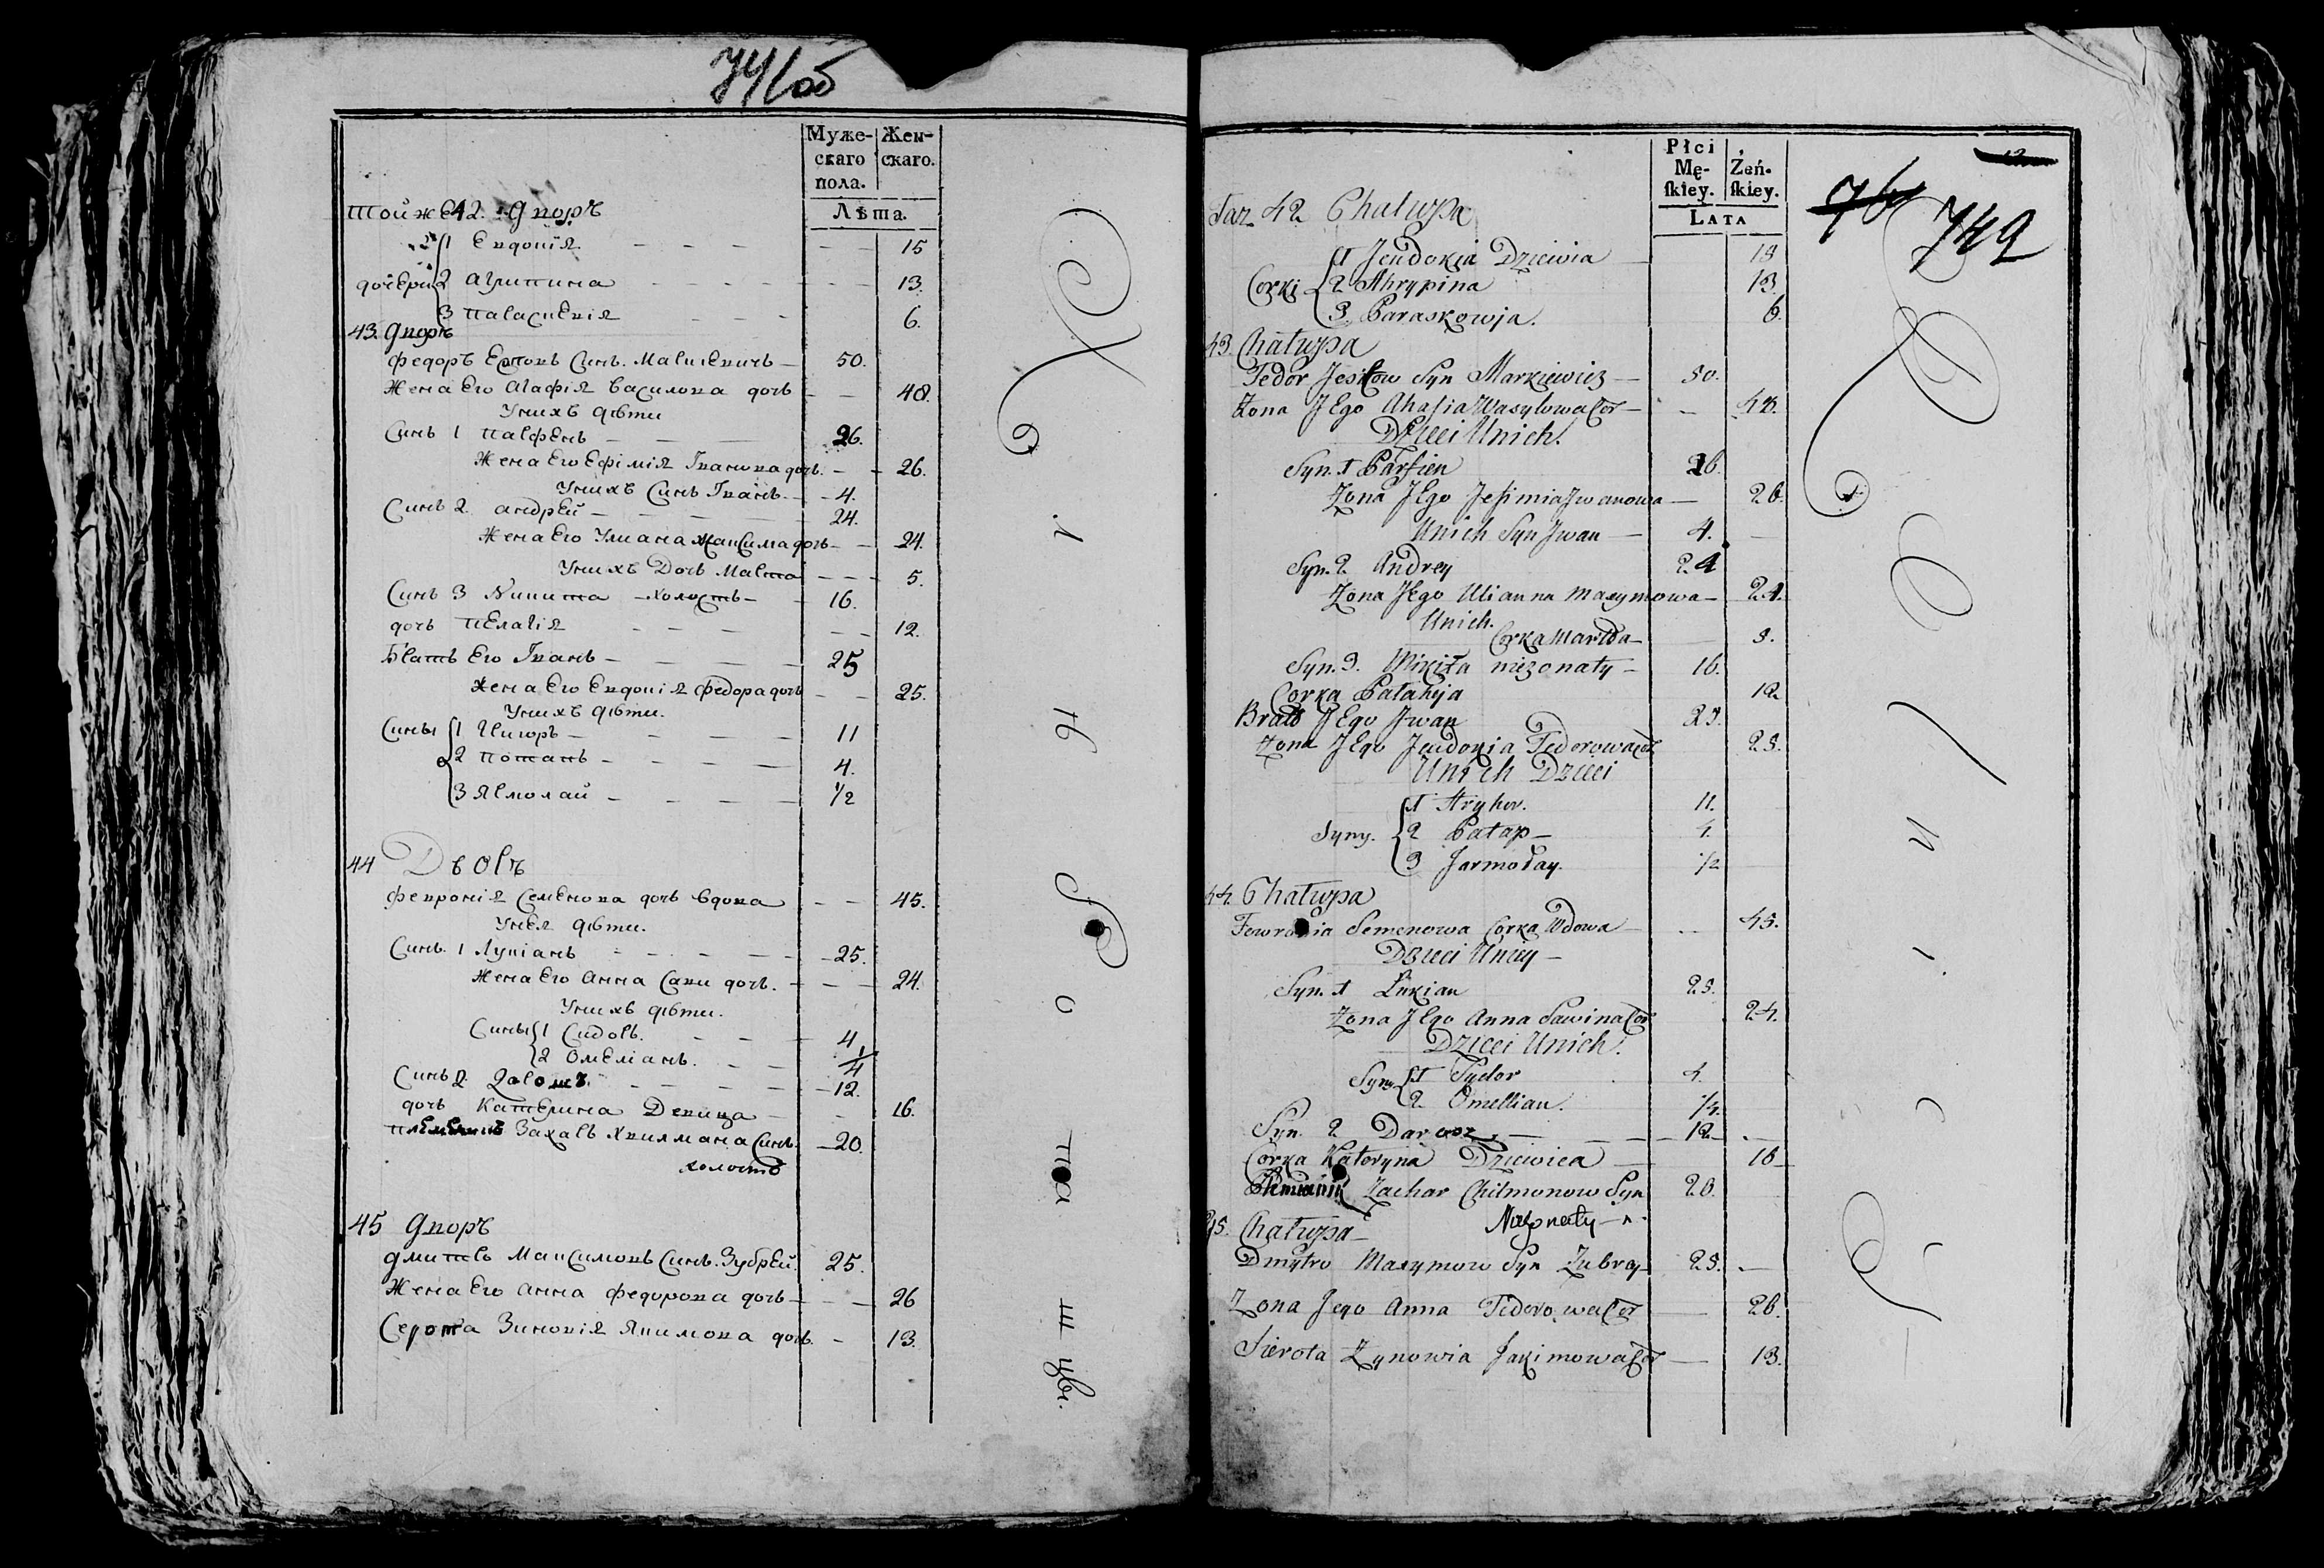 741об
Муже- Жен-
скаго скаго.
пола.
Лѣта.
тойже 42. Дворъ
1 Евдокія 15
дочери 2 Агрипина 13.
3 Параскевія 6.
43. Дворъ
Федоръ Есковъ Синъ. Маркевичъ 50.
Жена Его Агафія Василова дочь 48.
Унихъ Дѣти
Синъ 1 Парфенъ 26.
Жена Его Ефімія Іванова дочь. 26.
Унихъ Синъ Іванъ. 4.
Синъ 2. Андрей 24.
Жена Его Уліана Максима дочь 24.
Унихъ Дочь Марта 5.
Синъ 3 Никита Холостъ 16.
дочь Пелагія 12.
Братъ Его Іванъ 25
Жена Его Евдокія Федора дочь 25.
Унихъ Дѣти.
Сини 1 Григоръ 11
2 Потапъ 4.
3 Ярмолай 1/2
44 Дворъ
Февронія Семенова дочь вдова 45.
Унея Дѣти.
Синъ. 1 Лукіанъ 25.
Жена Его Анна Сави дочь. 24.
Унихъ Дѣти.
Сини 1 Сидоръ. 4
2 Омеліанъ. 1/4
Синъ 2. 12.
дочь Катерина Девица 16.
племеникъ Захаръ Хвилмана Синъ. 20.
холостъ
45 Дворъ
Дмитръ Максимовъ Синъ. Зубрей. 25.
Жена Его Анна Федорова дочь 26
Серота Зиновія Якимова дочь. 13.
Płci
Mę- Żeń-
skiey. skiey.
LATA
76 742
Taz 42 Chałupa
1 Jeudokia Dziewia 15
Corki 2 Ahrypina 13.
3. Paraskowja. 6.
43. Chałupa
Fedor Jeskow Syn Markiewicz 50.
Zona JEgo Ahafia Wasylowa Cor 48.
Dzieci Unich.
Syn. 1 Parfien 26.
Zona JEgo Jefimia Jwanowa 26.
Unich Syn Jwan 4.
Syn. 2 Andrey 24
Zona JEgo Ulianna Maxymowa 24.
Unich.
Corka Martha 5.
Syn. 3. Mikiła niezonaty 16.
Corka Pałahija 12
Bratt JEgo Jwan 25.
Zona JEgo Jeudokia Fedorowa Cor 25.
Unich Dzieci
1 Hryhor. 11.
Syny. 2 Patap 4.
3 Jarmołay. 1/2
44. Chałupa
Fewronia Semenowa Corka Wdowa 45.
Dzieci Uniey
Syn. 1 Łukian 25.
Zona JEgo Anna Sawina Cor 24.
Dzieci Unich.
Syny 1 Sydor 4.
2. Omellian. 1/4.
Syn. 2 12
Corka Kateryna Dziewica 16
Plemianik Zachar Chilmonow Syn 20.
Niezonaty
45. Chałupa
Dmytro Maxymow Syn Zubrey 25.
Zona Jego Anna Fedorowa Cor 26.
Sierota Zynowia Jakimowa Cor 13.